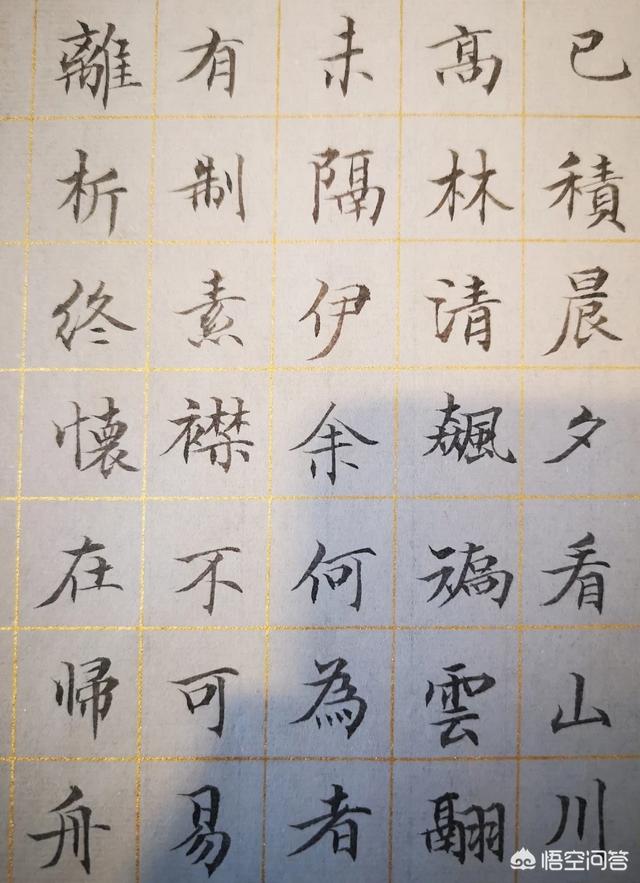 已積晨夕看山川
髙林清飆矯雲翮
未隔伊余何為者
有制素襟不可易
離析終懐在帰舟
悟空问答